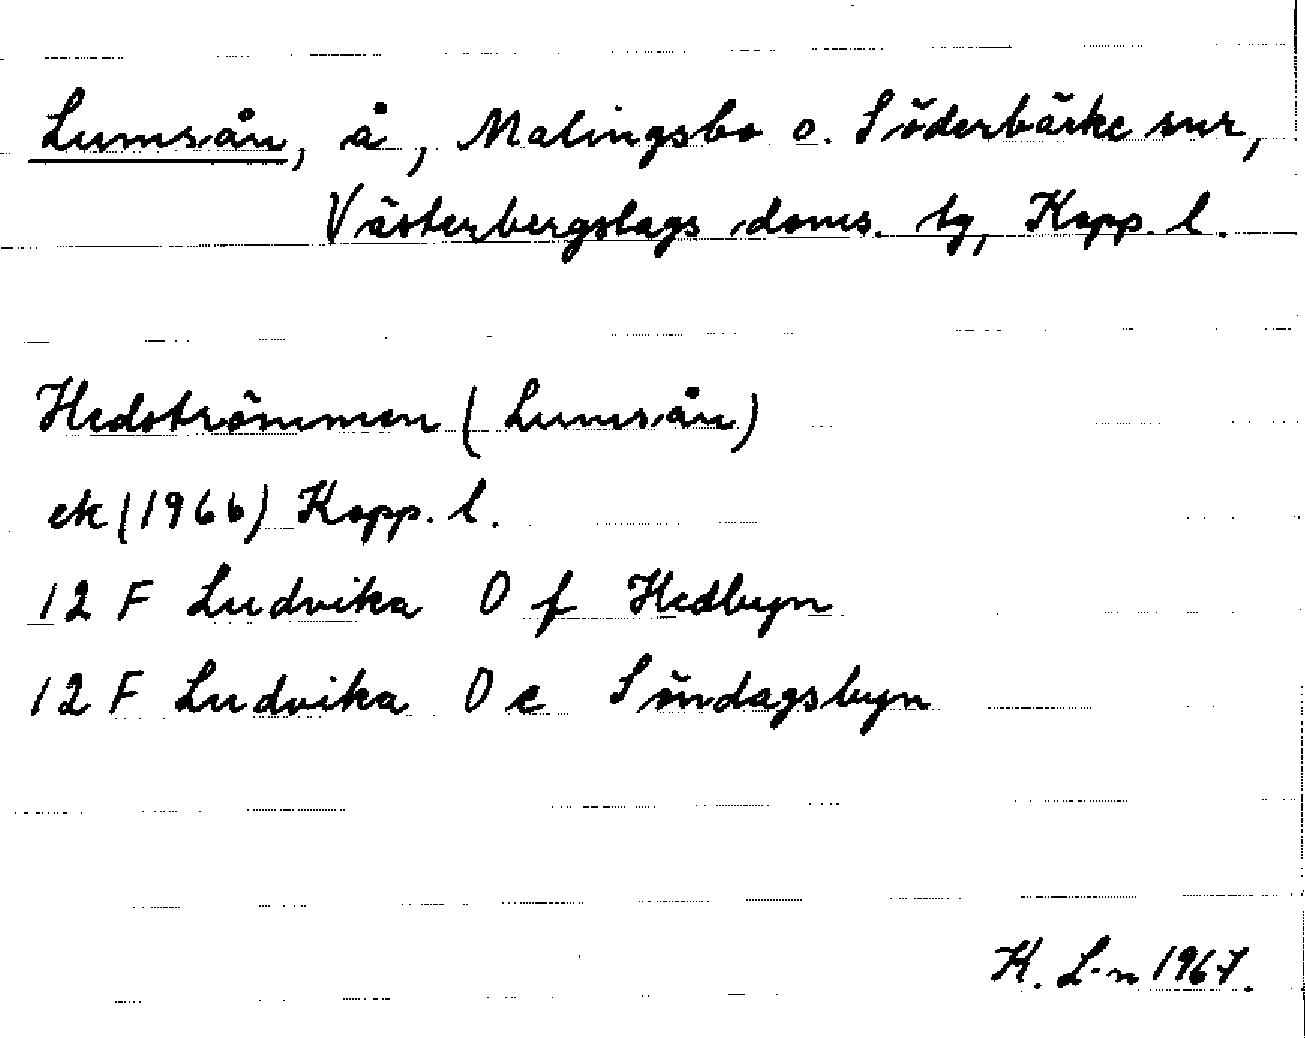 Lumsån, å, Malingsbo o. Söderbärke snr,
Västerbergslags doms. tg, Kopp. l.
Hedströmmen (Lumsån)
ek (1966) Kopp. l.
12 F Ludvika 0 f Hedbyn
12 F Ludvika 0 e Söndagsbyn
H. L-n 1967.